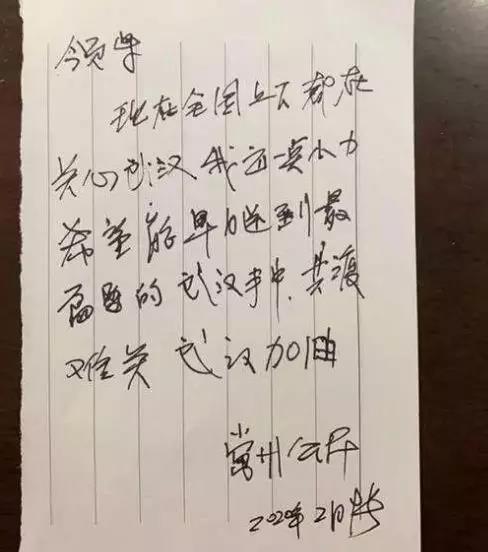 领导
现在全国上下都在
关心武汉我这一点小力
希望能早日送到最
需要的武汉手中.共渡
难关 武汉加油
常州
2020年2月